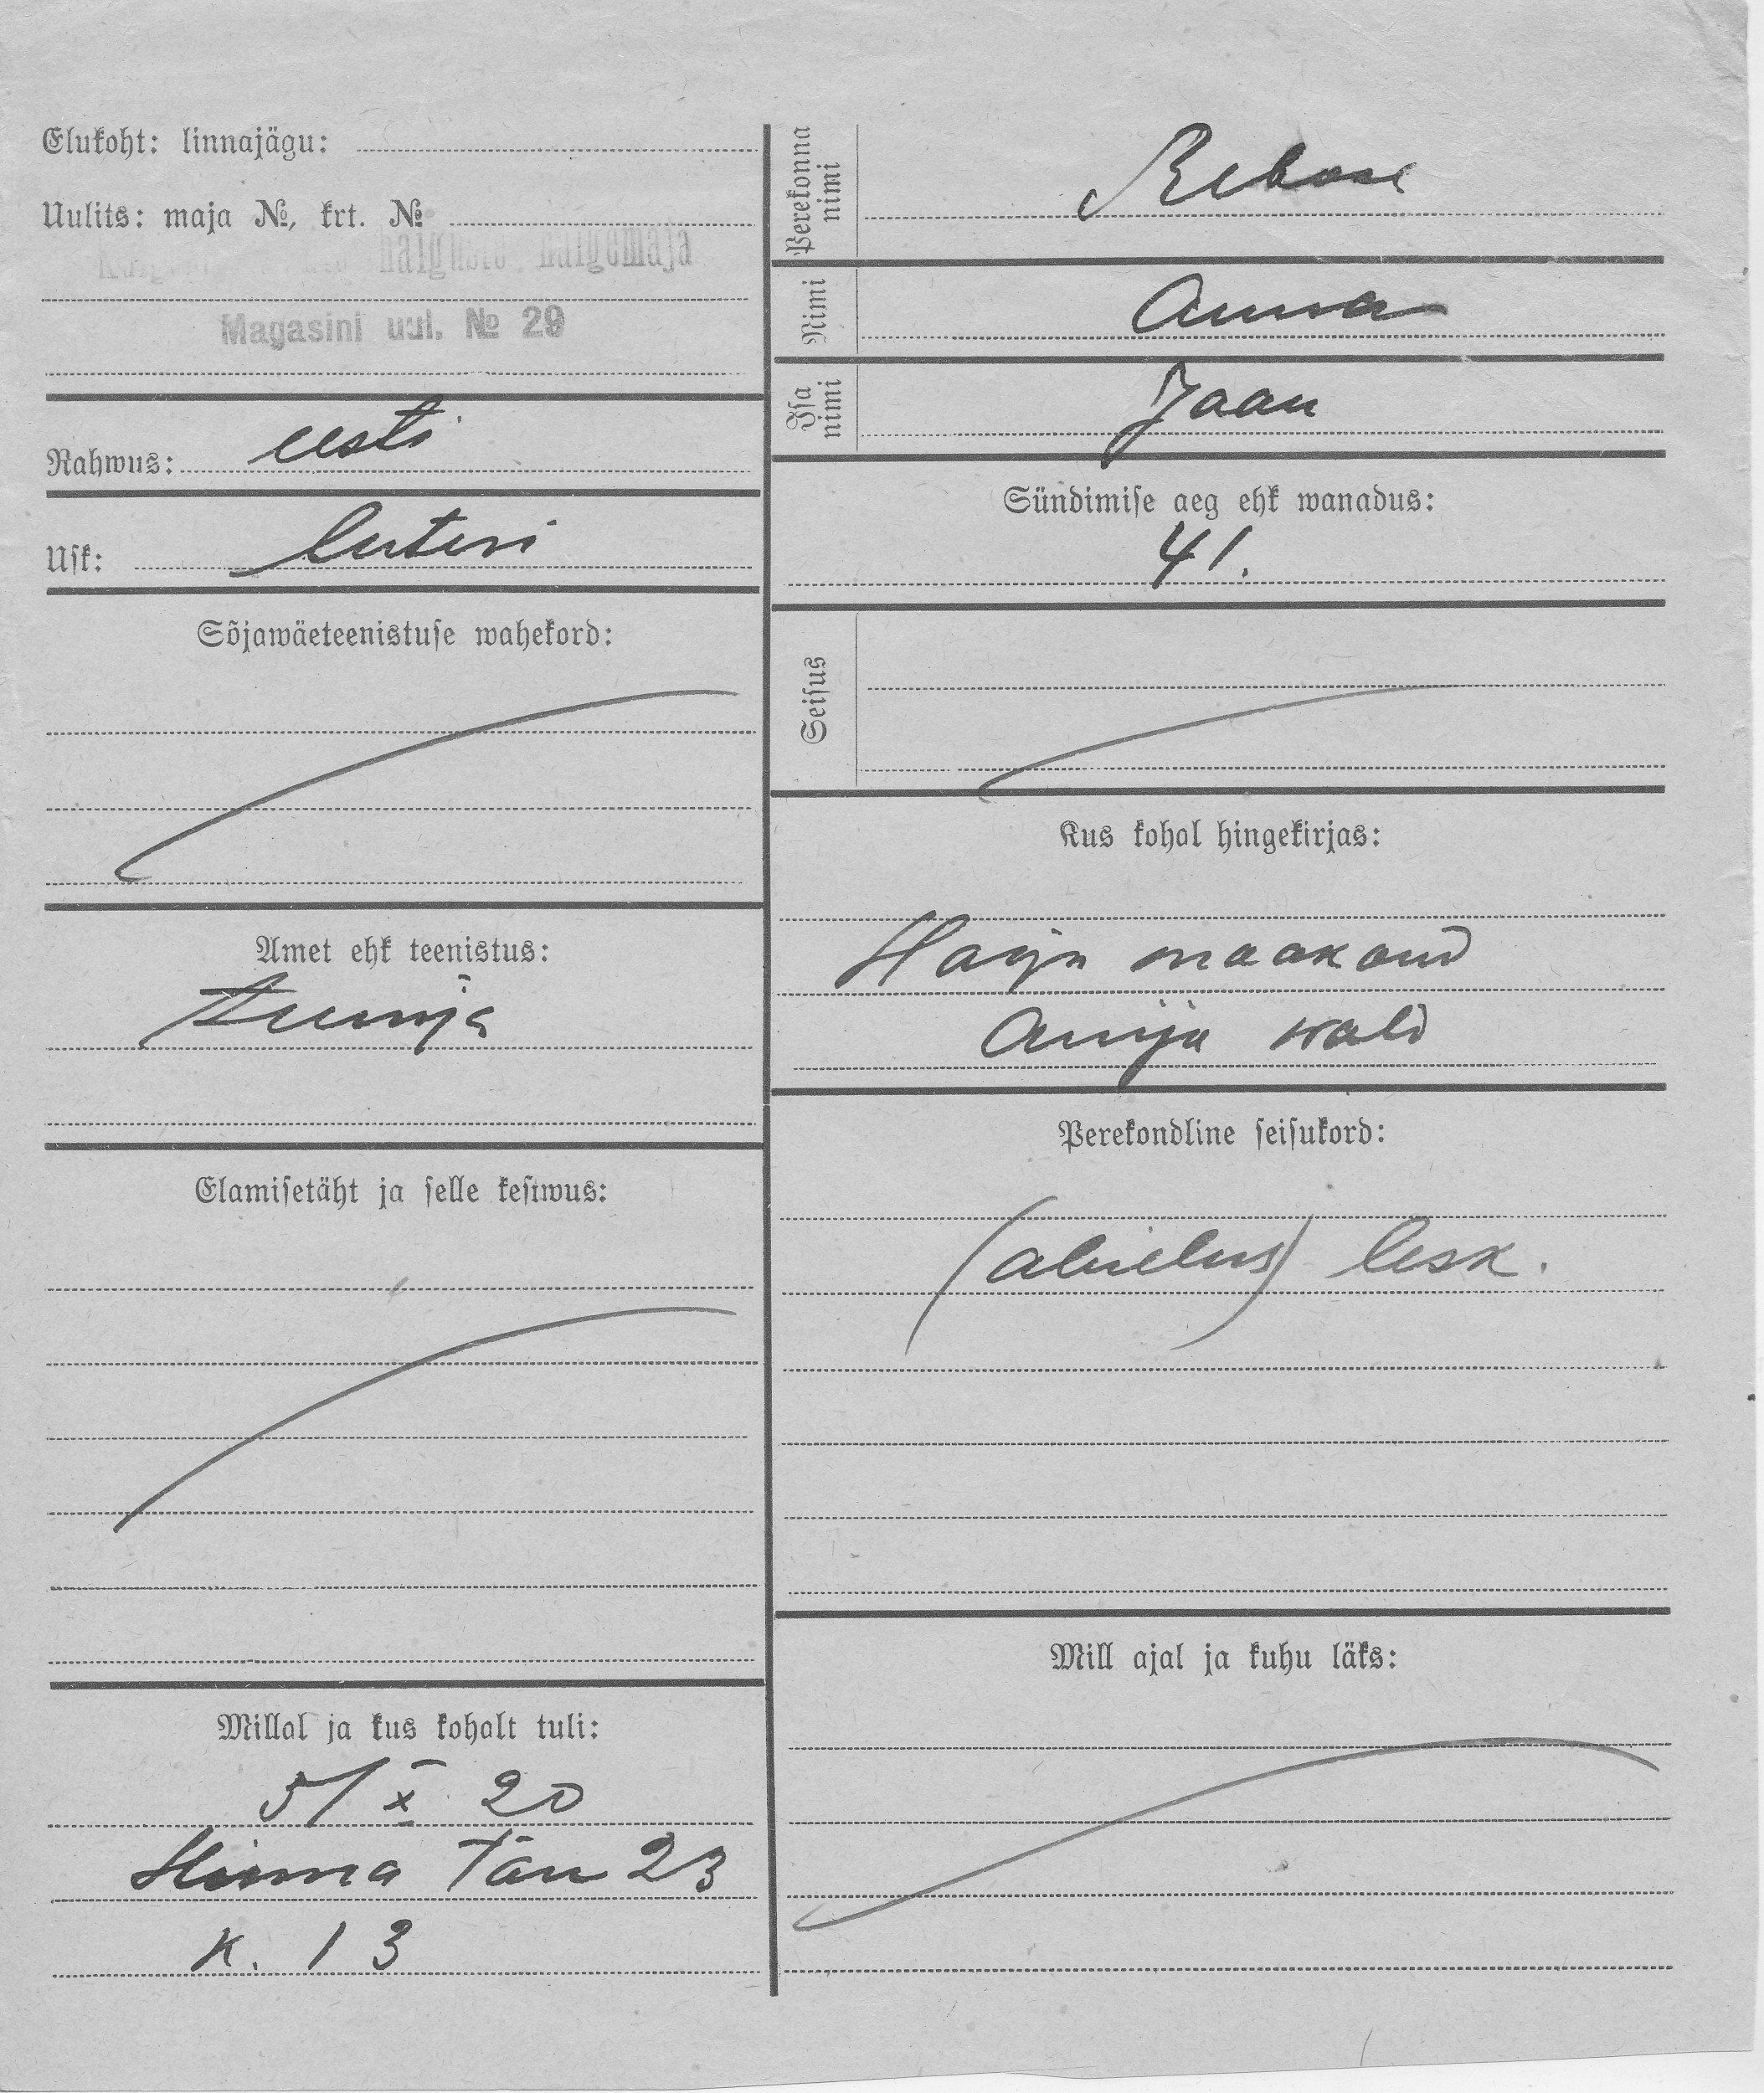 Elukoht: linnajägu:
Uulits: maja №, krt. №
haigemaja
Magasini uul. № 29
Rahwus: eesti
Usk: luteri
Sõjawäeteenistuse wahekord:
Amet ehk teenistus:
Elamisetäht ja selle kestwus:
Millal ja kus kohalt tuli:
5/X 20
Tän 23
K. 13
Perekonna nimi Rebase
Nimi Anna
Isa nimi Jaan
Sündimise aeg ehk wanadus:
41.
Seisus
Kus kohal hingekirjas:
Harju maakond
Anija wald
Perekondline seisukord:
(abielus) lesk.
Mill ajal ja kuhu läks: